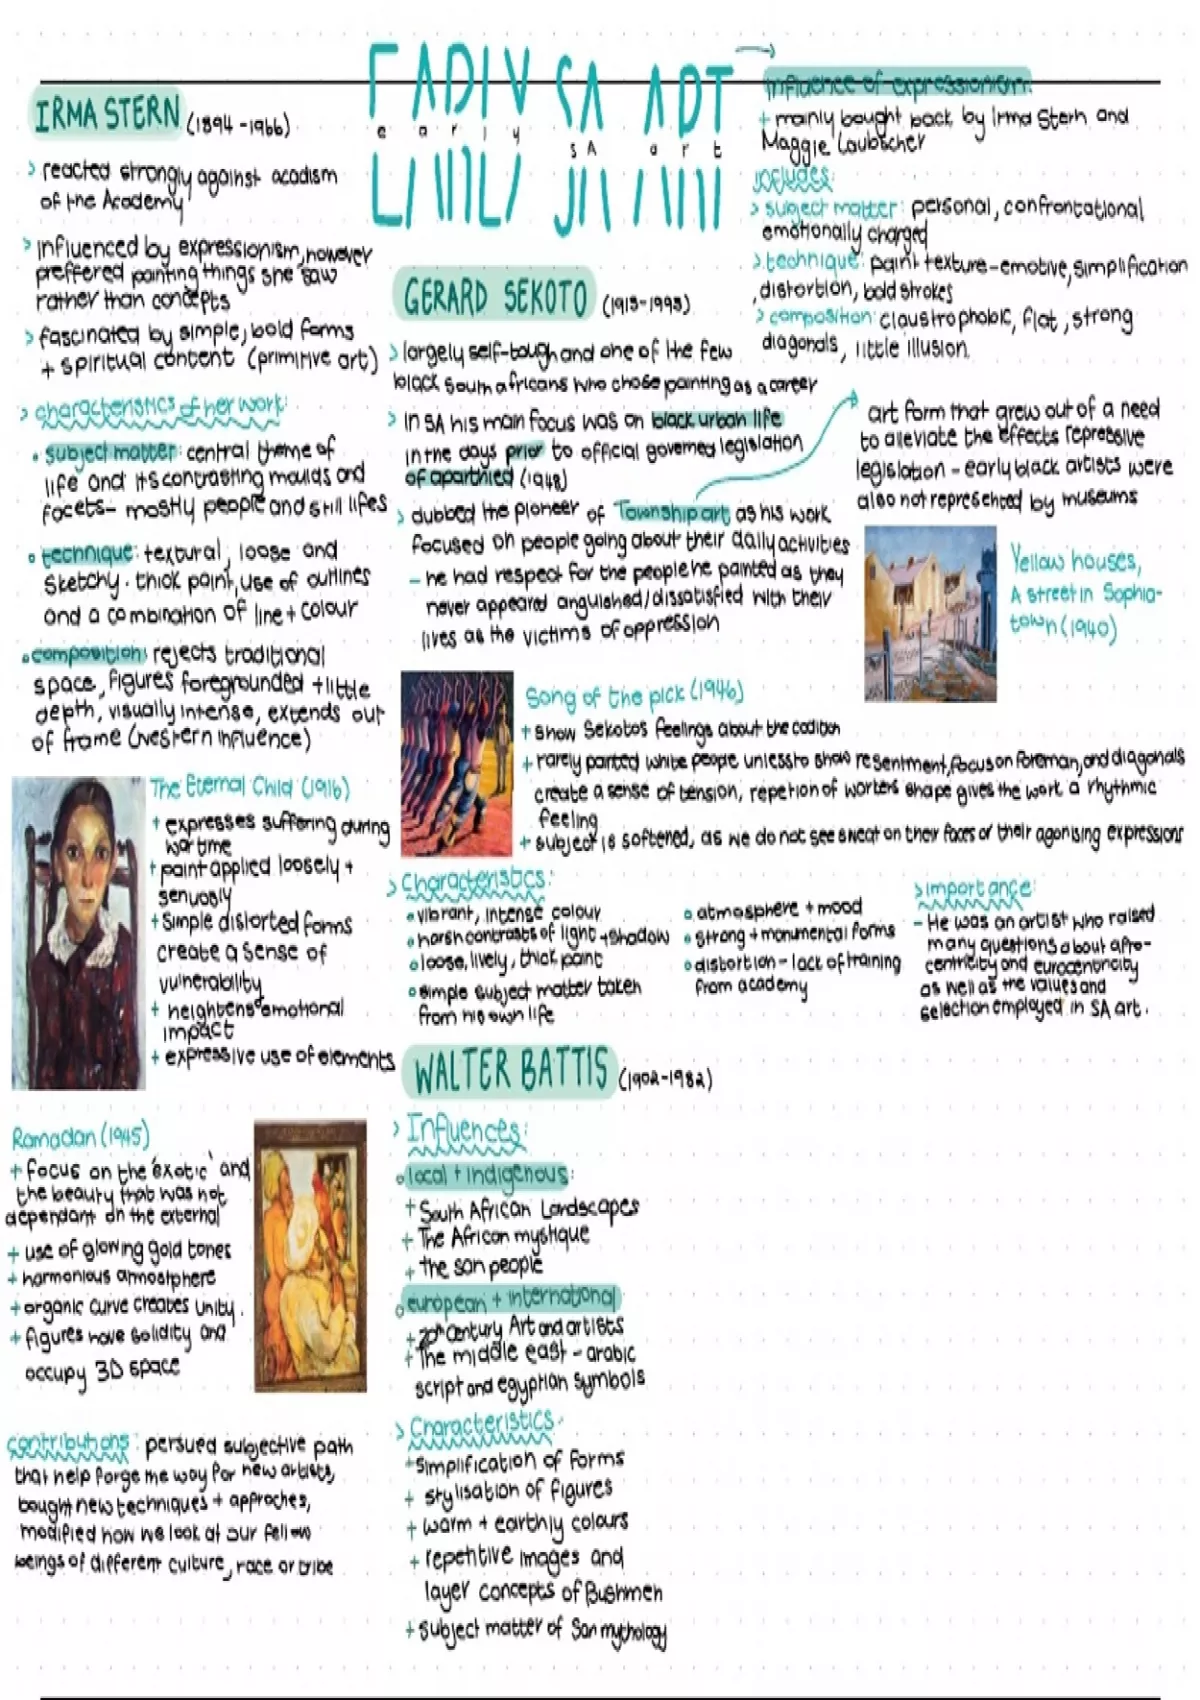 EARLY SA ART
early
SA art
IRMA STERN (1894-1966)
> reacted strongly against acadism
of the Academy
> influenced by expressionism, however
preffered painting things she saw
rather than concepts
> fascinated by simple, bold forms
+ spiritual content (primitive art)
> characteristics of her work:
• subject matter: central theme of
life and its contrasting moulds and
facets - mostly people and still lifes
• technique: textural, loose and
sketchy. thick paint, use of outlines
and a combination of line + colour
• composition: rejects traditional
space, figures foregrounded + little
depth, visually intense, extends out
of frame (western influence)
The Eternal Child (1916)
+ expresses suffering during
wartime
+ paint applied loosely +
senuosly
+ simple distorted forms
create a sense of
vulnerability
+ heightens emotional
impact
+ expressive use of elements
Ramadan (1945)
+ focus on the 'exotic' and
the beauty that was not
dependant on the external
+ use of glowing gold tones
+ harmonious atmostphere
+ organic curve creates unity.
+ figures have solidity and
occupy 3D space
contributions: persued subjective path
that help forge the way for new artists,
bought new techniques + approches,
modified how we look at our fellow
beings of different culture, race or tribe
GERARD SEKOTO (1913-1993)
> largely self-tough and one of the few
black south africans who chose painting as a career
> in SA his main focus was on black urban life
in the days prior to official governed legislation
of aparthied (1948)
> dubbed the pioneer of Township art as his work
focused on people going about their daily activities
- he had respect for the people he painted as they
never appeared anguished/dissatisfied with their
lives as the victims of oppression
Song of the pick (1946)
+ show Sekotos feelings about the
+ rarely painted white people unless to show resentment, focus on foreman, and diagonals
create a sense of tension, repetion of workers shape gives the work a rhythmic
feeling
+ subject is softened, as we do not see sweat on their faces or their agonising expressions
> Characteristics:
• vibrant, intense colour
• harsh contrasts of light + shadow
• loose, lively, thick paint
• simple subject matter taken
from his own life
• atmosphere + mood
• strong + monumental forms
• distortion - lack of training
from academy
> importance:
- He was an artist who raised
many questions about afro-
centricity and eurocentricity
as well as the values and
selection employed in SA art.
WALTER BATTIS (1902-1982)
> Influences:
• local + indigenous:
+ South African Landscapes
+ The African mystique
+ the san people
• european + international
+ 20th Century Art and artists
+ The middle east - arabic
script and egyptian symbols
> Characteristics:
+ simplification of forms
+ stylisation of figures
+ warm + earthly colours
+ repetitive images and
layer concepts of Bushmen
+ subject matter of San mythology
influence of expressionism:
+ mainly bought back by Irma Stern and
Maggie Laubscher
includes:
> subject matter: personal, confrontational
emotionally charged
> technique: paint texture-emotive, simplification
, distortion, bold strokes
> composition: claustrophobic, flat, strong
diagonals, little illusion.
art form that grew out of a need
to aleviate the effects repressive
legislation - early black artists were
also not represented by museums
Yellow houses,
A street in Sophia-
town (1940)